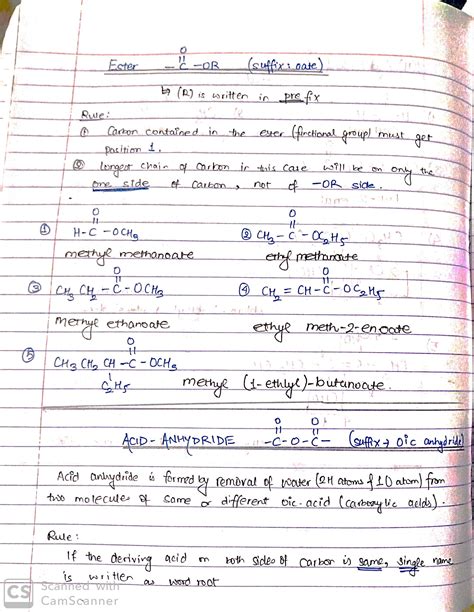 O
Ester — C — OR (suffix: oate)
↳ (R) is written in prefix
Rule:
① Carbon contained in the ester (functional group) must get
position 1.
② longest chain of carbon in this case will be on only the
one side of carbon, not of -OR side.
O
① H-C-OCH3
O
② CH3-C-OC2H5
methyl methanoate
ethyl methanoate
O
③ CH3 CH2-C-OCH3
O
④ CH2=CH-C-OC2H5
methyl ethanoate
ethyl meth-2-enoate
O
⑤ CH3 CH2 CH-C-OCH3
C2H5
methyl (1-ethyl)-butanoate.
O O
ACID-ANHYDRIDE -C-O-C- (suffix → oic anhydride)
Acid anhydride is formed by removal of water (2H atoms & 1O atom) from
two molecules of same or different oic-acid (carboxylic acids).
Rule:
If the deriving acid on both sides of carbon is same, single name
is written as word root
CS Scanned with
CamScanner